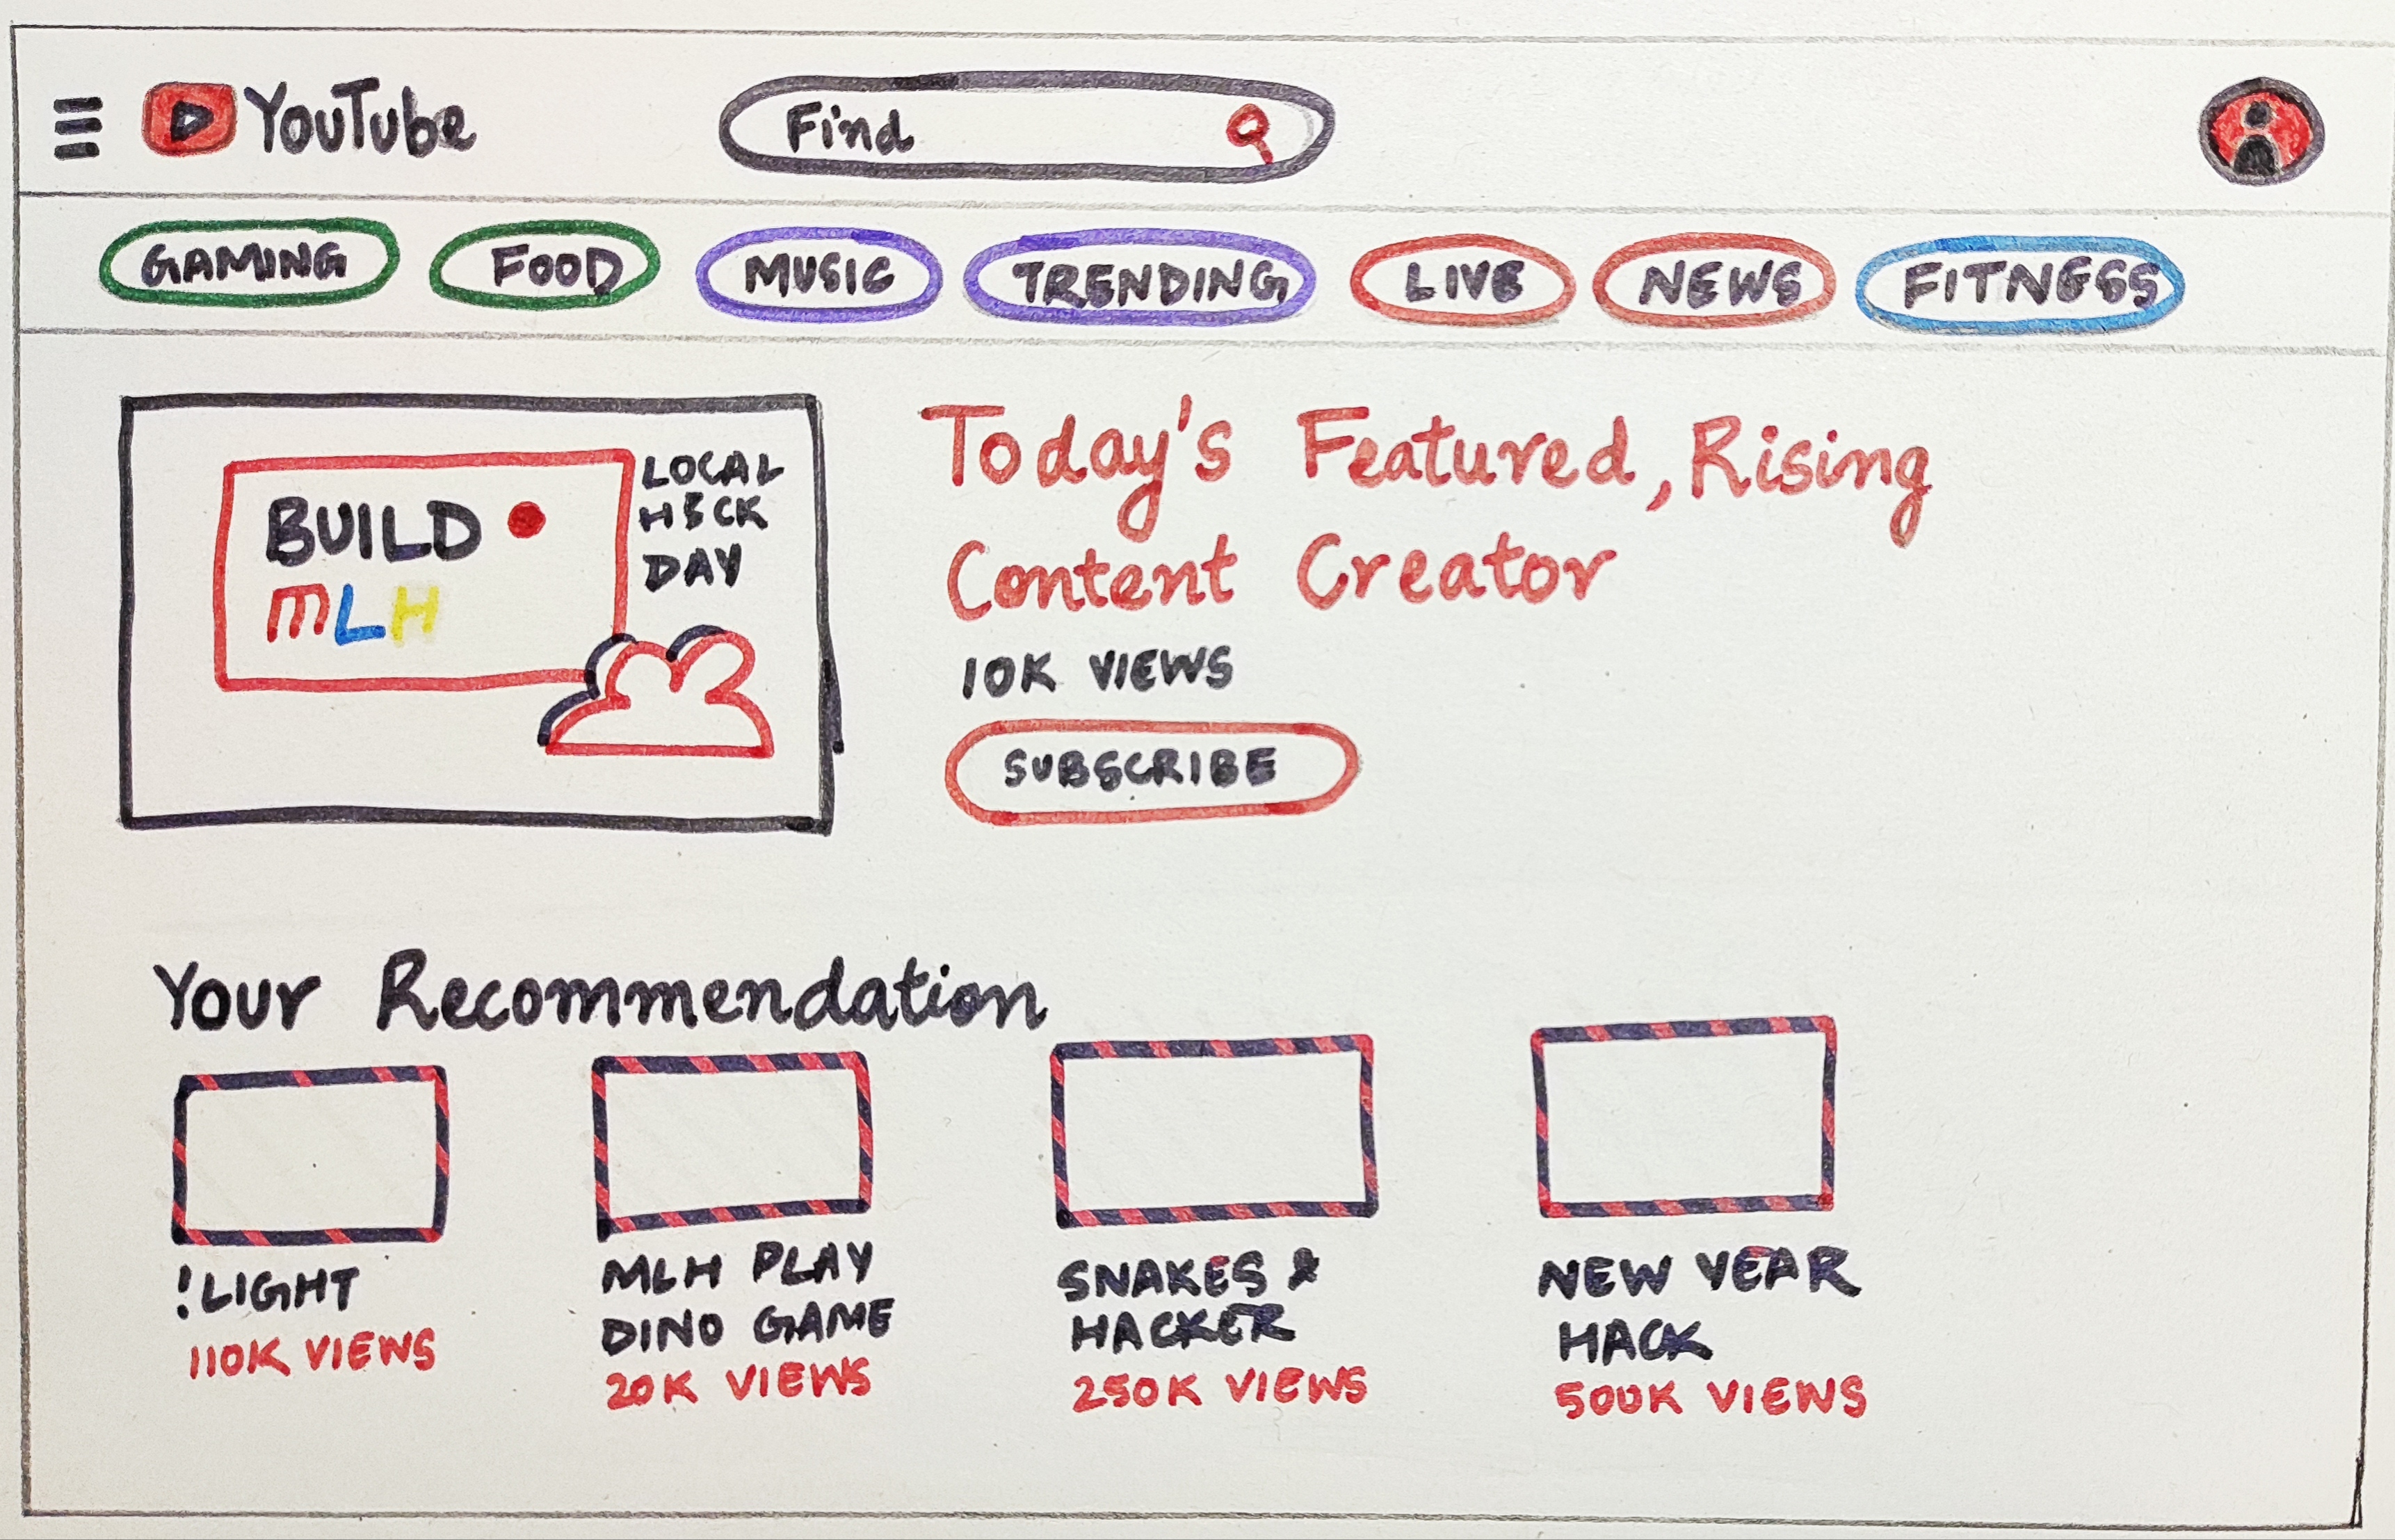 YouTube
Find
GAMING
FOOD
MUSIC
TRENDING
LIVE
NEWS
FITNESS
BUILD
MLH
LOCAL
HACK
DAY
Today's Featured, Rising
Content Creator
10K VIEWS
SUBSCRIBE
Your Recommendation
!LIGHT
110K VIEWS
MLH PLAY
DINO GAME
20K VIEWS
SNAKES &
HACKER
250K VIEWS
NEW YEAR
HACK
500K VIEWS